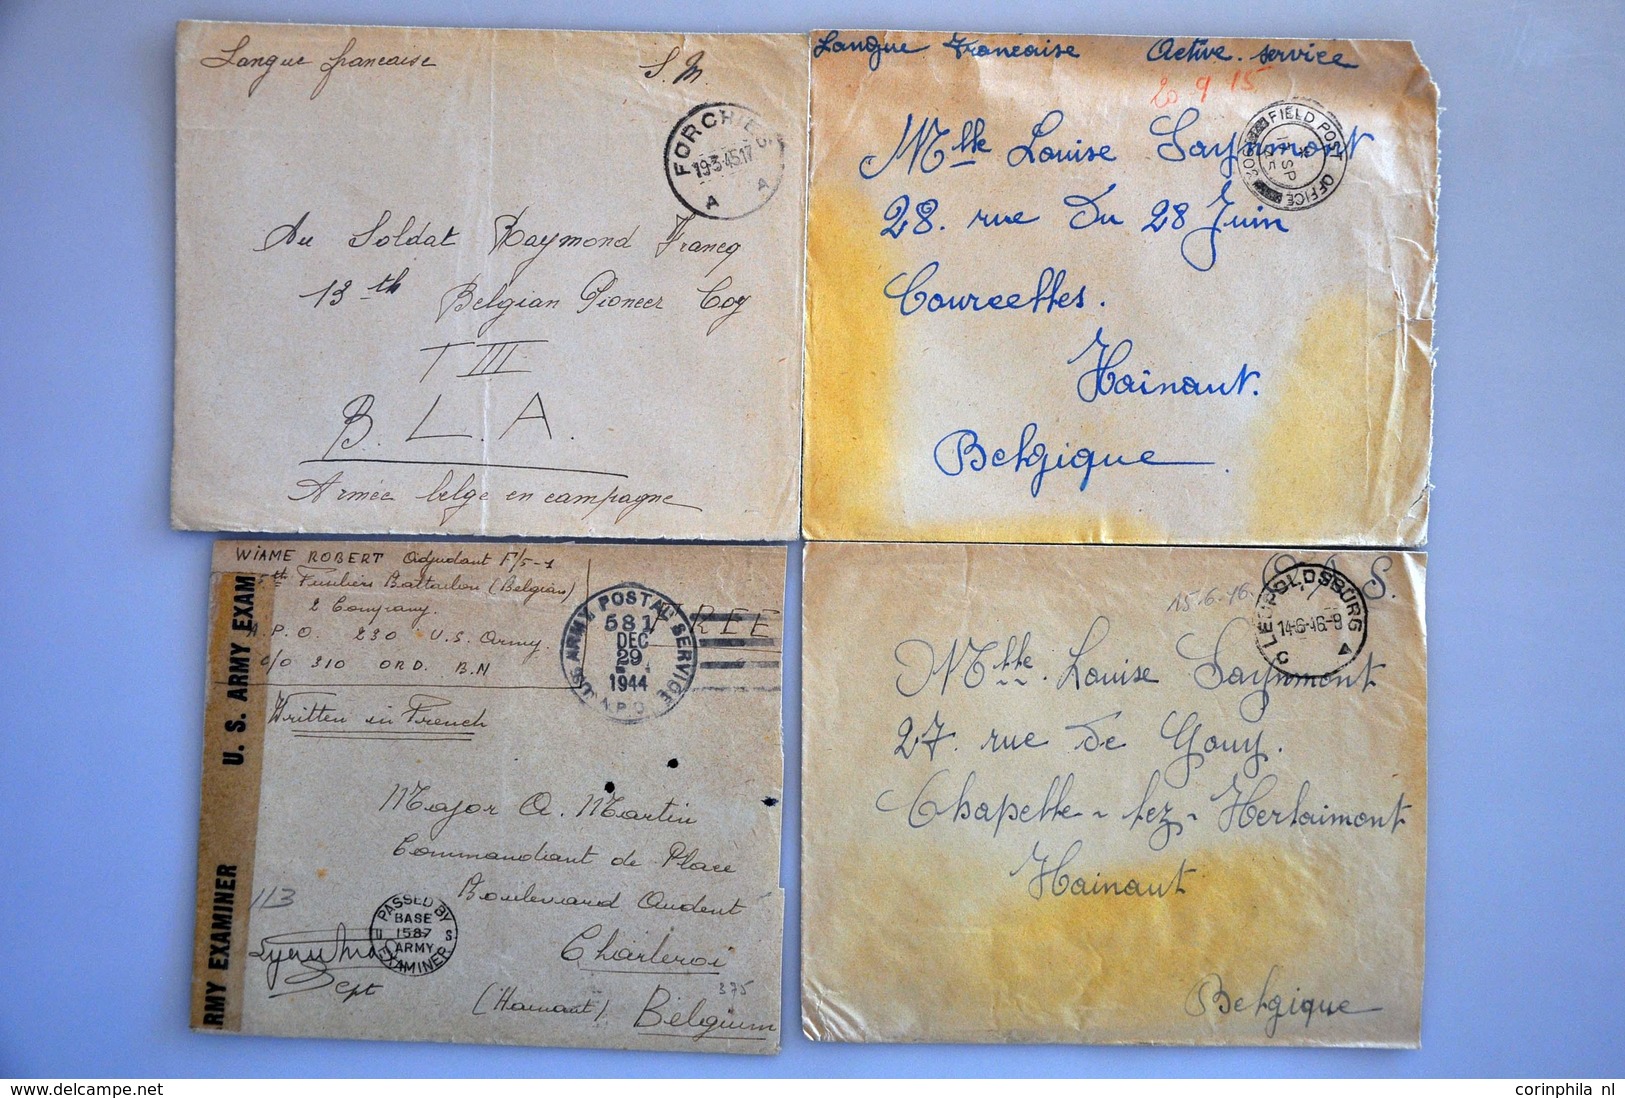 Langue francaise S.M.
FORCHIES
19-3-45.17
A A
Au Soldat Raymond Francq
13th Belgian Pioneer Coy
T III
B. L. A.
Armée belge en campagne
Langue Francaise Active. service
20 9 45
FIELD POST OFFICE
14 SP
45
Mlle Louise Saynmont
28. rue du 28 Juin
Courcelles.
Hainaut.
Belgique
WIAME ROBERT Adjudant F/5-1
5th Fusiliers Battalion (Belgian)
2 Company.
A.P.O. 230 U.S. Army.
c/o 310 ORD. B.N
FREE
U.S. ARMY POSTAL SERVICE
581
DEC
29
1944
A.P.O.
Written in French
U. S. ARMY EXAM
ARMY EXAMINER
Major A. Martin
Commandant de Place
Boulevard Audent
Charleroi
(Hainaut) Belgium
113
PASSED BY
BASE
U 1587 S
ARMY
EXAMINER
375
O.A.S.
15.6.46.
LEOPOLDSBURG
14-6-46.-9
C A
Mlle. Louise Saynmont
27. rue de Gouy.
Chapelle-lez-Herlaimont
Hainaut
Belgique
delcampe.net
corinphila nl